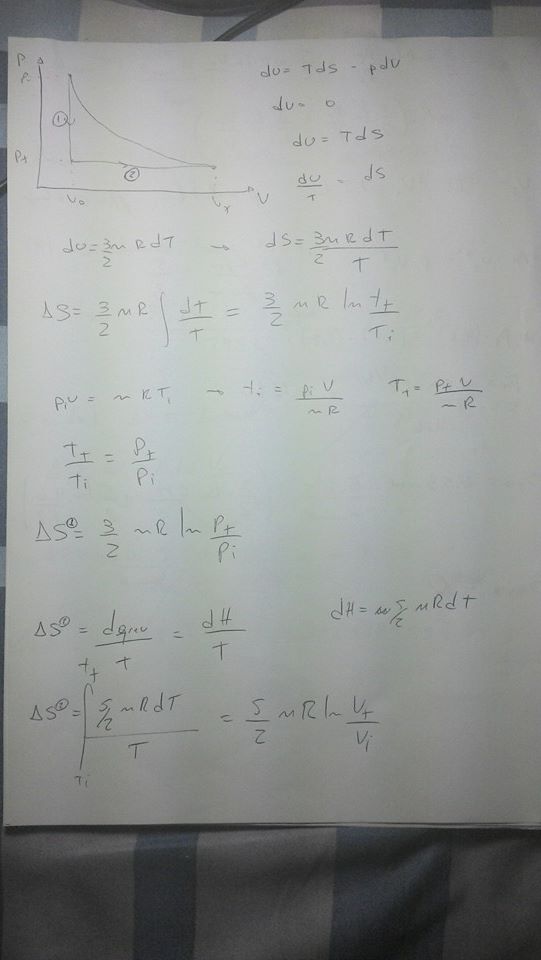 P
Pi
①
Pf
②
V₀ Vf V
dU = TdS - pdV
dU = 0
dU = TdS
dU/T = dS
dU = 3/2 nRdT → dS = 3/2 nRdT/T
ΔS = 3/2 nR ∫ dT/T = 3/2 nR ln Tf/Ti
piV = nRTi → Ti = piV/nR Tf = pfV/nR
Tf/Ti = Pf/Pi
ΔS① = 3/2 nR ln Pf/Pi
ΔS② = dqrev/T = dH/T dH = 5/2 nRdT
ΔS② = ∫ Ti Tf 5/2 nRdT/T = 5/2 nR ln Vf/Vi